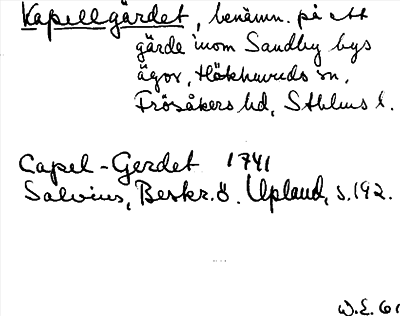 Kapellgärdet, benämn. på ett
gärde inom Sandby bys
ägor, Hökhuvuds sn,
Frösåkers hd, Sthlms l.
Capel-Gerdet 1741
Salvius, Beskr. ö. Upland, s. 192.
W.E. 61